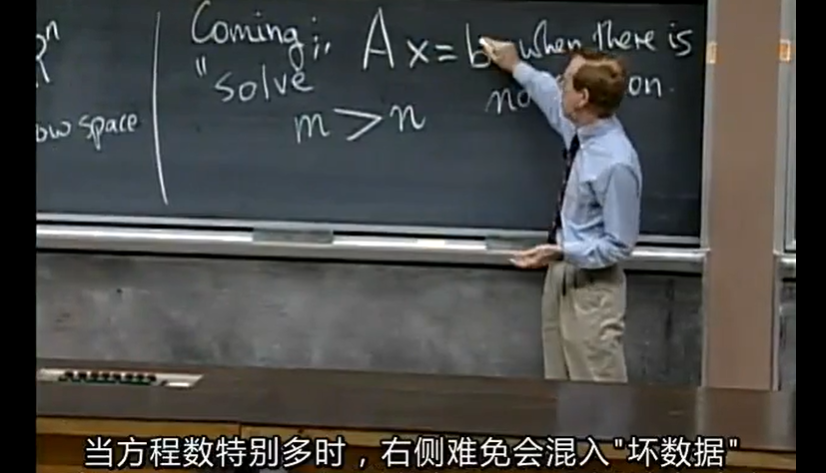 Rⁿ
ow space
Coming:
"solve Ax = b when there is
no on.
m > n
当方程数特别多时，右侧难免会混入"坏数据"